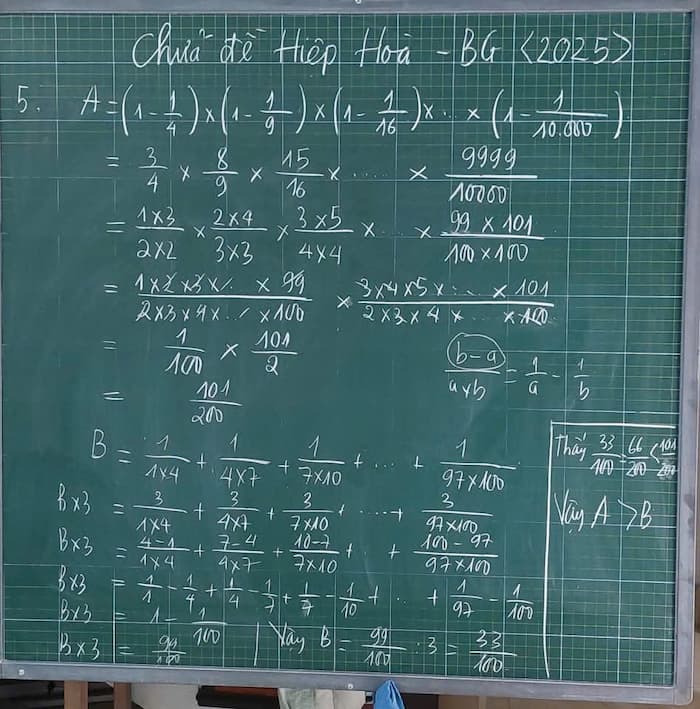 Chữa đề Hiệp Hoà - BG <2025>
5. A = (1 - 1/4) × (1 - 1/9) × (1 - 1/16) × ... × (1 - 1/10.000)
= 3/4 × 8/9 × 15/16 × ...... × 9999/10000
= 1×3/2×2 × 2×4/3×3 × 3×5/4×4 × ... × 99×101/100×100
= 1×2×3×... ×99/2×3×4×...×100 × 3×4×5×...×101/2×3×4×...×100
= 1/100 × 101/2
b-a/a×b = 1/a - 1/b
= 101/200
B = 1/1×4 + 1/4×7 + 1/7×10 + ... + 1/97×100
B×3 = 3/1×4 + 3/4×7 + 3/7×10 + ... + 3/97×100
B×3 = 4-1/1×4 + 7-4/4×7 + 10-7/7×10 + .. + 100-97/97×100
B×3 = 1/1 - 1/4 + 1/4 - 1/7 + 1/7 - 1/10 + ... + 1/97 - 1/100
B×3 = 1 - 1/100
B×3 = 99/100 | Vậy B = 99/100 : 3 = 33/100
Thấy 33/100 = 66/200 < 101/200
Vậy A > B